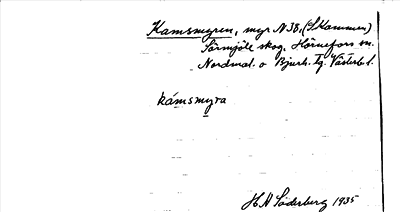 Kamsmyren, myr N 38, (S Kammen)
Sörmjöle skog. Hörnefors sn.
Nordmal. o Bjurh. tg. Västerb l.
kámsmyra
H A Söderberg 1935